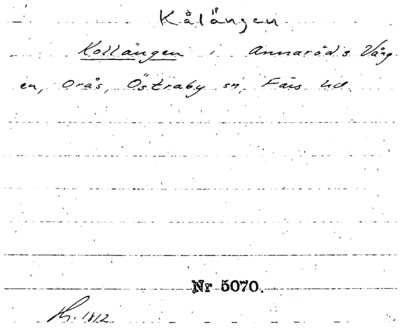 Kålängen
Kollängen i Annaröds Vång
en, Orås, Östraby sn, Färs hd
Nr 5070.
1812